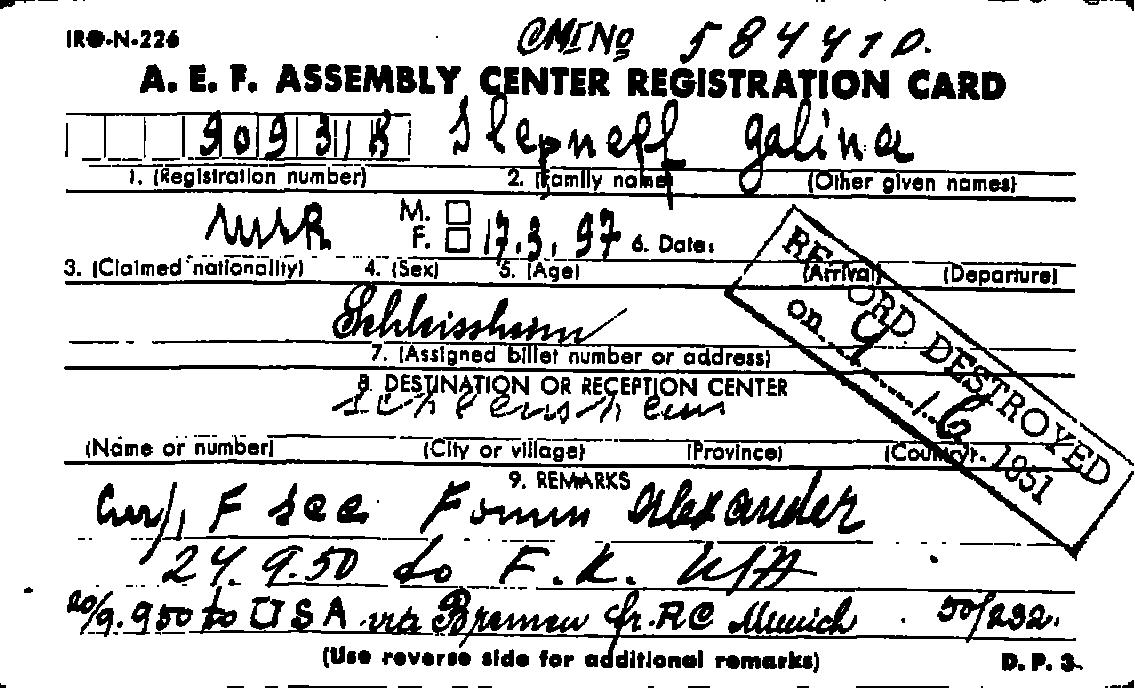 IRO-N-226 CM1 No 584410.
A. E. F. ASSEMBLY CENTER REGISTRATION CARD
Galina
1. (Registration number) 2. (Family name) (Other given names)
M.
F. 17.3.97 6. Date:
3. (Claimed nationality) 4. (Sex) 5. (Age) (Arrival) (Departure)
Schleissheim
7. (Assigned billet number or address)
8. DESTINATION OR RECEPTION CENTER
(Name or number) (City or village) (Province) (Country)
9. REMARKS
F see Alexander
24.9.50 to F.K.
20/9.950 to USA via Bremen fr. RC Munich 50/232.
(Use reverse side for additional remarks) D. P. 3
RECORD DESTROYED
on 9. 1951